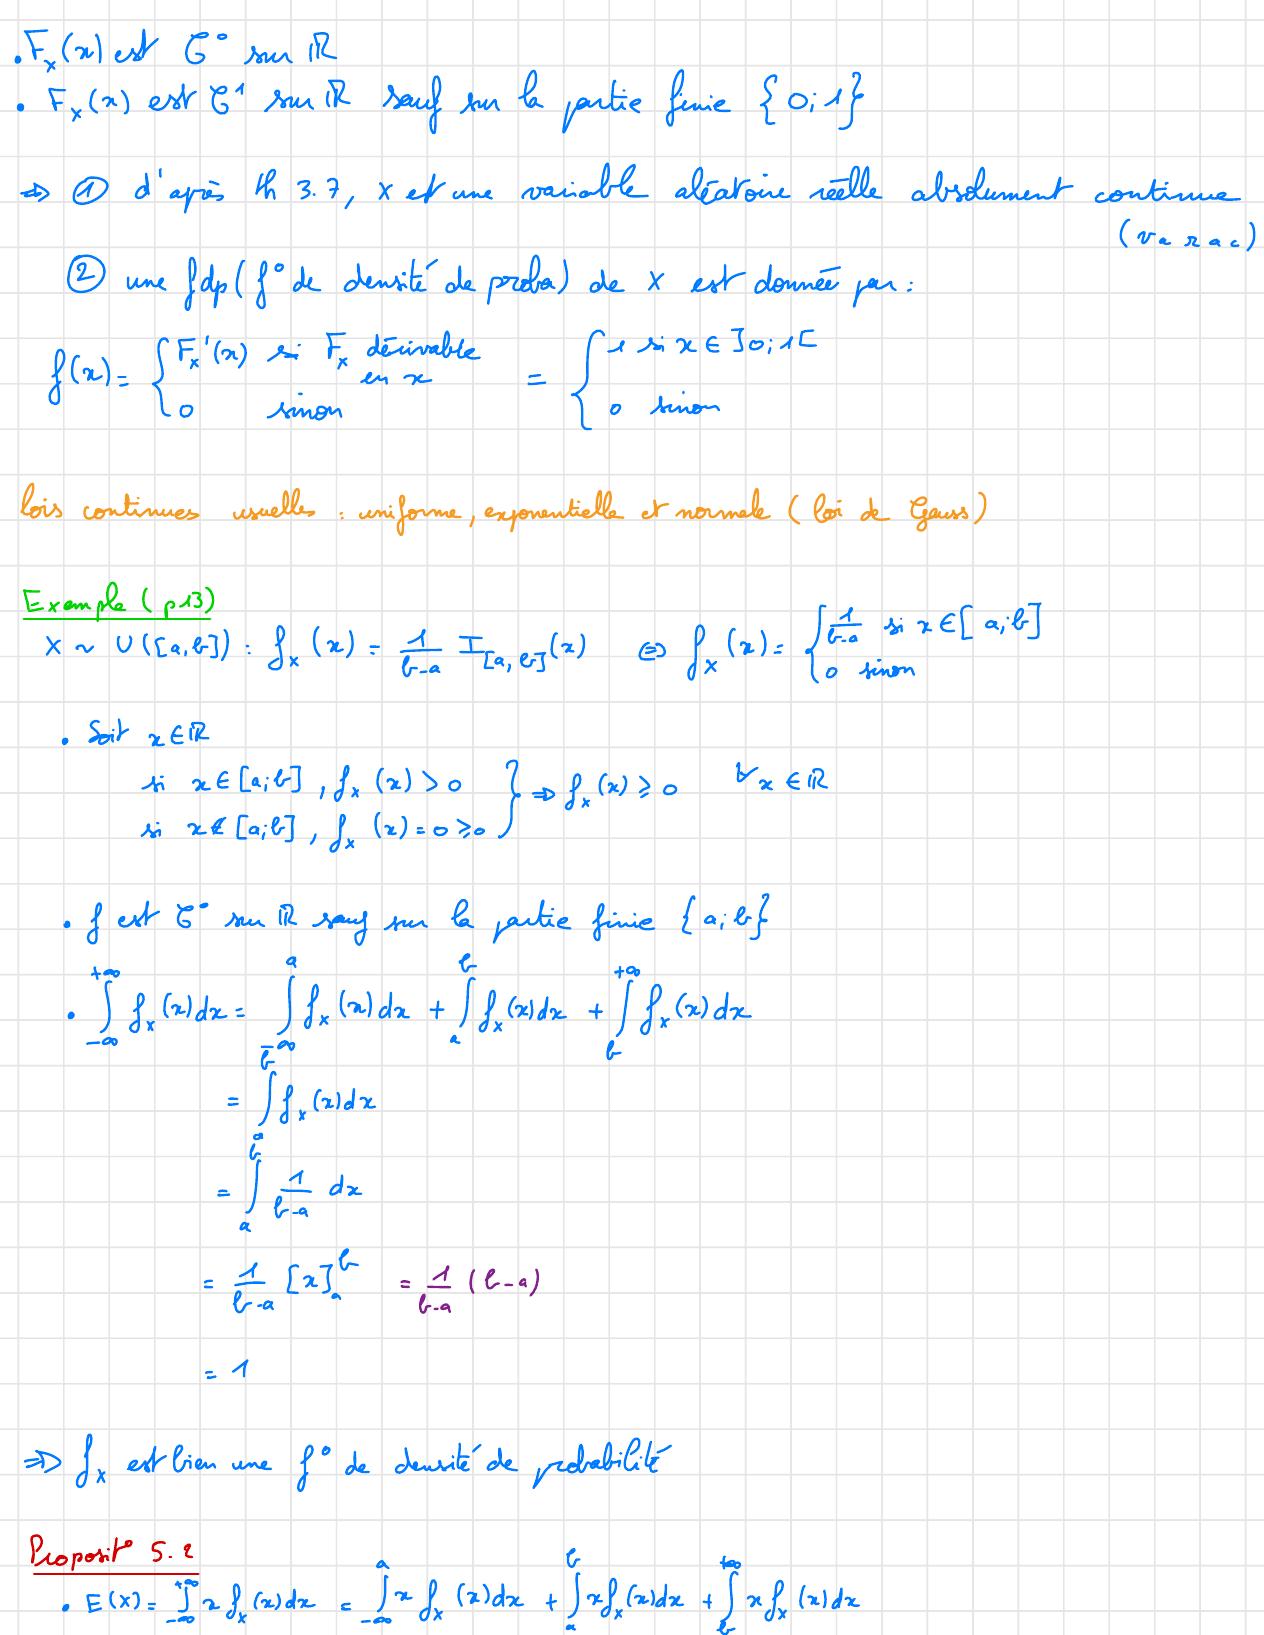 . F_X(x) est C° sur ℝ
. F_X(x) est C¹ sur ℝ sauf sur la partie finie {0;1}
⇒ ① d'après th 3.7, X est une variable aléatoire réelle absolument continue
(varac)
② une fdp (f° de densité de proba) de X est donnée par :
f(x) = { F_X'(x) si F_X dérivable en x ; 0 sinon = { 1 si x ∈ ]0;1[ ; 0 sinon
lois continues usuelles : uniforme, exponentielle et normale (loi de Gauss)
Example (p13)
X ~ U([a,b]) : f_X(x) = 1/(b-a) I_[a,b](x) ⇔ f_X(x) = { 1/(b-a) si x ∈ [a;b] ; 0 sinon
. Soit x ∈ ℝ
si x ∈ [a;b], f_X(x) > 0 } ⇒ f_X(x) ⩾ 0 ∀x ∈ ℝ
si x ∉ [a;b], f_X(x) = 0 ⩾ 0
. f est C° sur ℝ sauf sur la partie finie {a;b}
. ∫_{-∞}^{+∞} f_X(x)dx = ∫_{-∞}^{a} f_X(x)dx + ∫_{a}^{b} f_X(x)dx + ∫_{b}^{+∞} f_X(x)dx
= ∫_{a}^{b} f_X(x)dx
= ∫_{a}^{b} 1/(b-a) dx
= 1/(b-a) [x]_a^b = 1/(b-a) (b-a)
= 1
⇒ f_X est bien une f° de densité de probabilité
Proposit° 5.2
. E(X) = ∫_{-∞}^{+∞} x f_X(x)dx = ∫_{-∞}^{a} x f_X(x)dx + ∫_{a}^{b} x f_X(x)dx + ∫_{b}^{+∞} x f_X(x)dx